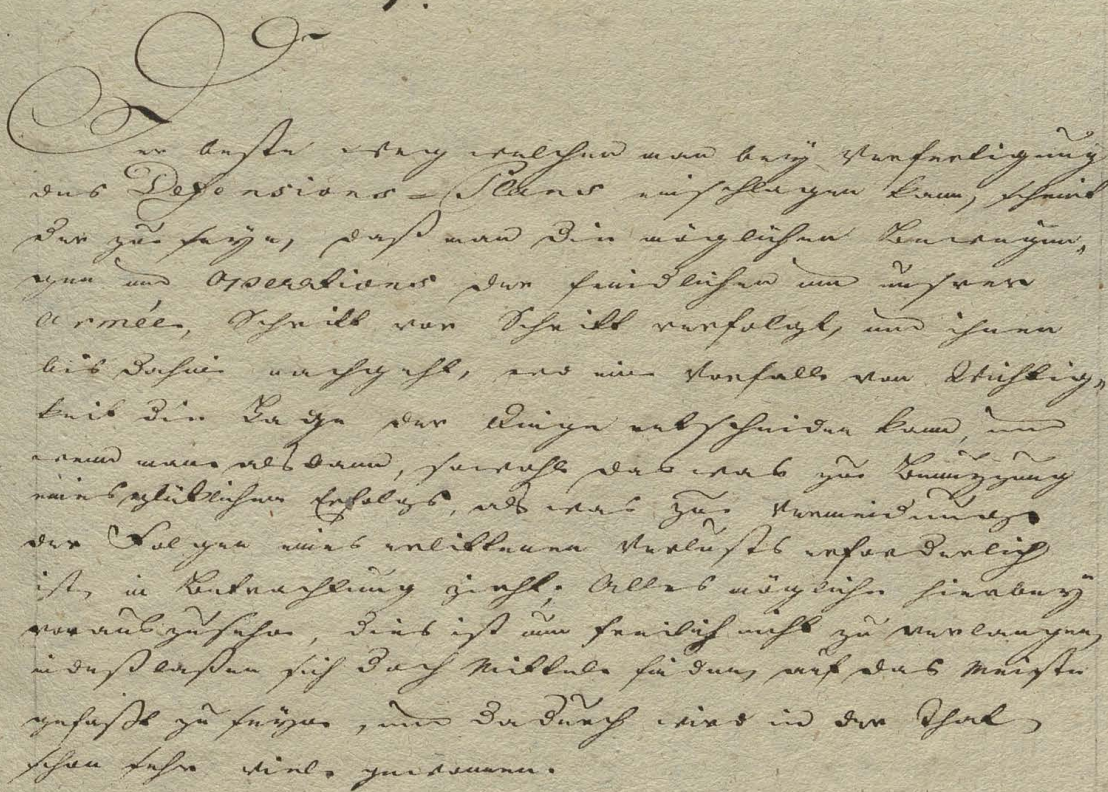 Der beste Weg welchen man bey Verfertigung
des Defensions-Plans einschlagen kann, scheint
der zu seyn, daß man die möglichen Bewegun„
gen und Operations der feindlichen und unsrer
Armée, Schritt vor Schritt verfolgt, und ihnen
bis dahin nachgeht, wo ein Vorfall von Wichtig„
keit die Lage der Dinge entscheiden kann, und
wenn man alsdann, sowohl das was zur Benutzung
eines glüklichen Erfolgs, als was zur Vermeidung
der Folgen eines erlittenen Verlusts erforderlich
ist, in Betrachtung zieht. Alles mögliche hierbey
vorauszusehn, dies ist nun freilich nicht zu verlangen,
indeß laßen sich doch Mittel finden, auf das Meiste
gefaßt zu seyn, und dadurch wird in der That
schon sehr viel gewonnen.